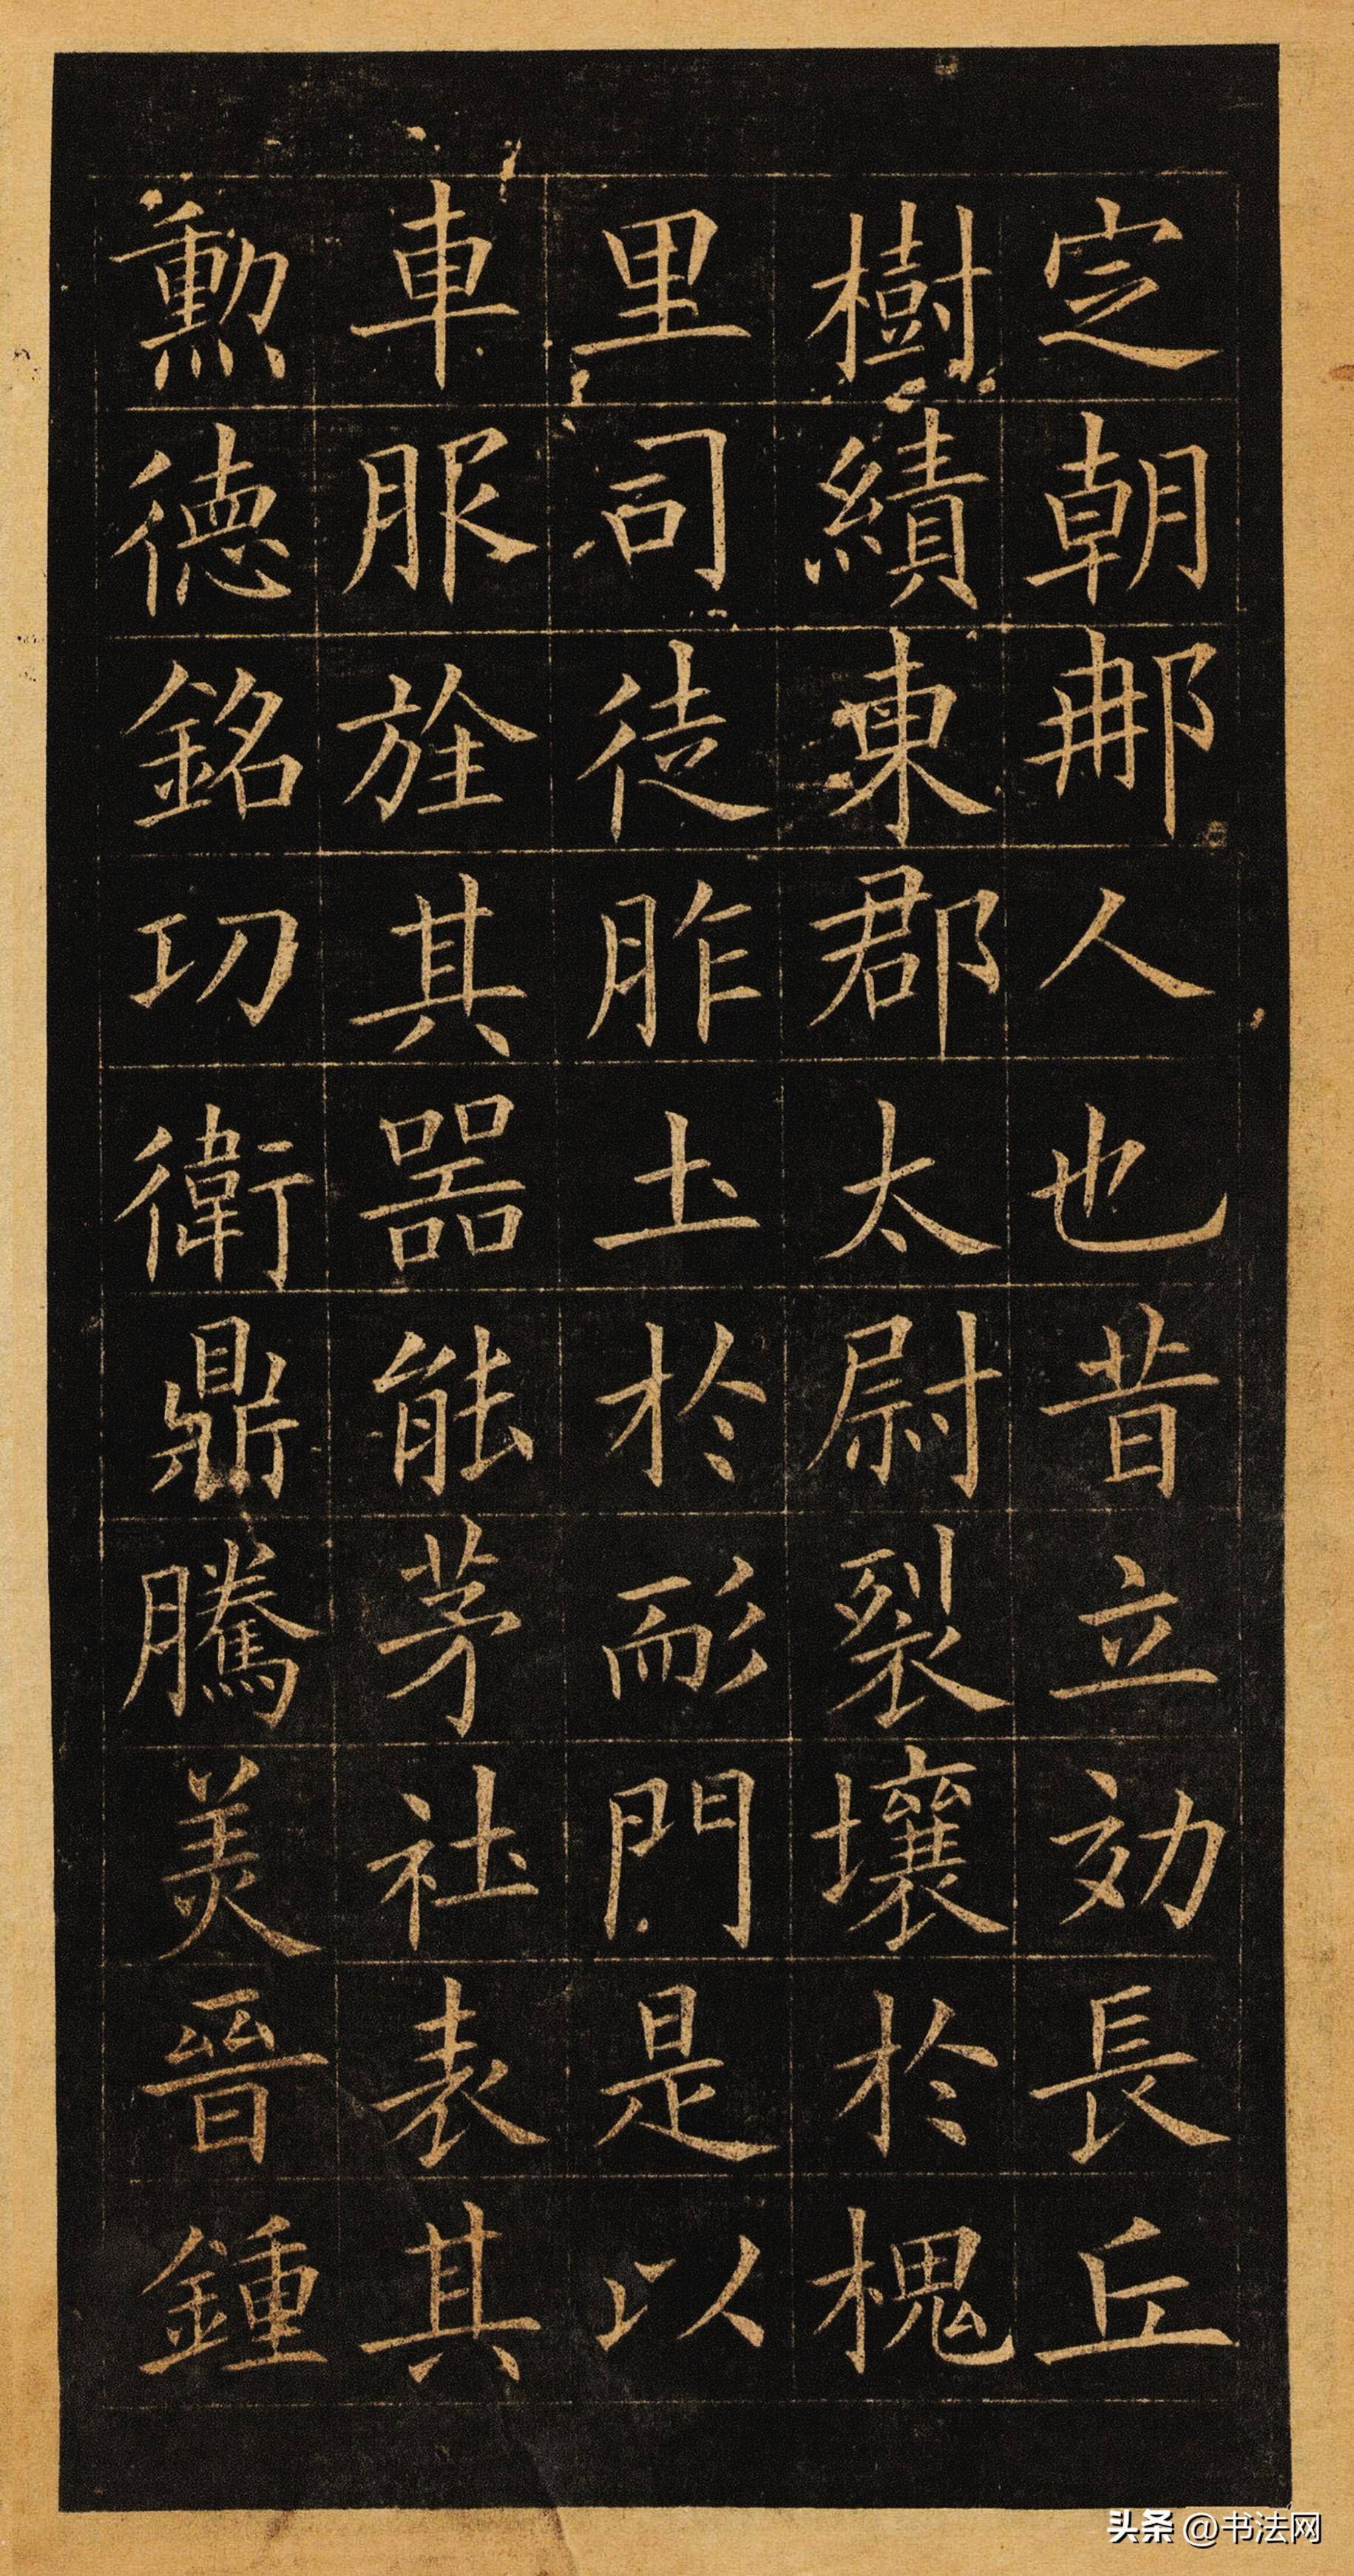 定朝䢴人也昔立効長丘
樹績東郡太尉裂壤於槐
里司徒胙土於耏門是以
車服旌其器能茅社表其
勲德銘功衛鼎騰美晉鍾
头条 @书法网